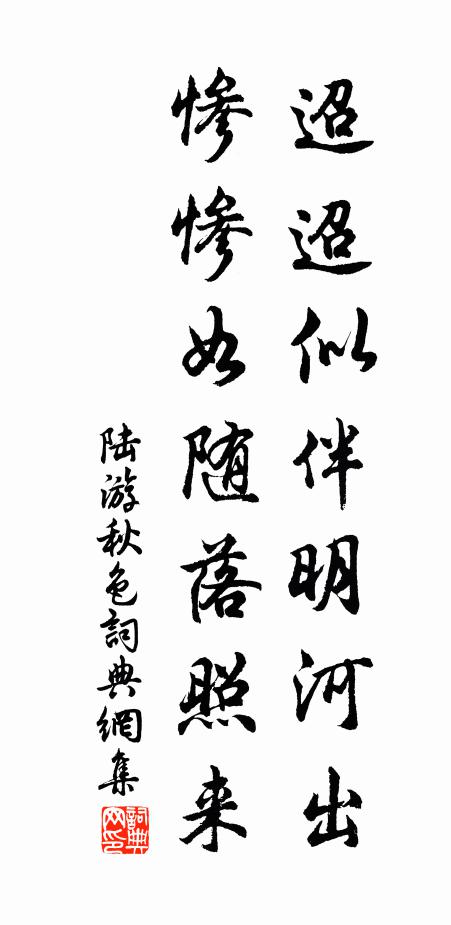 迢迢似伴明河出
惨惨如随落照来
陆游秋色詞典網集
詞典网印